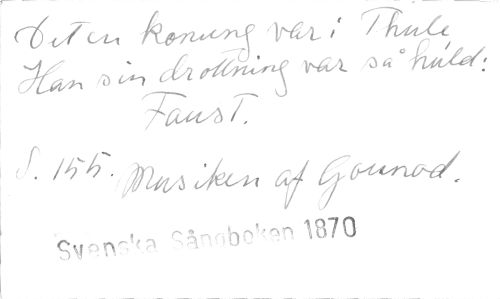 Det en konung var i Thule
Han sin drottning var så huld:
Faust.
S. 155. Musiken af Gounod.
Svenska Sångboken 1870